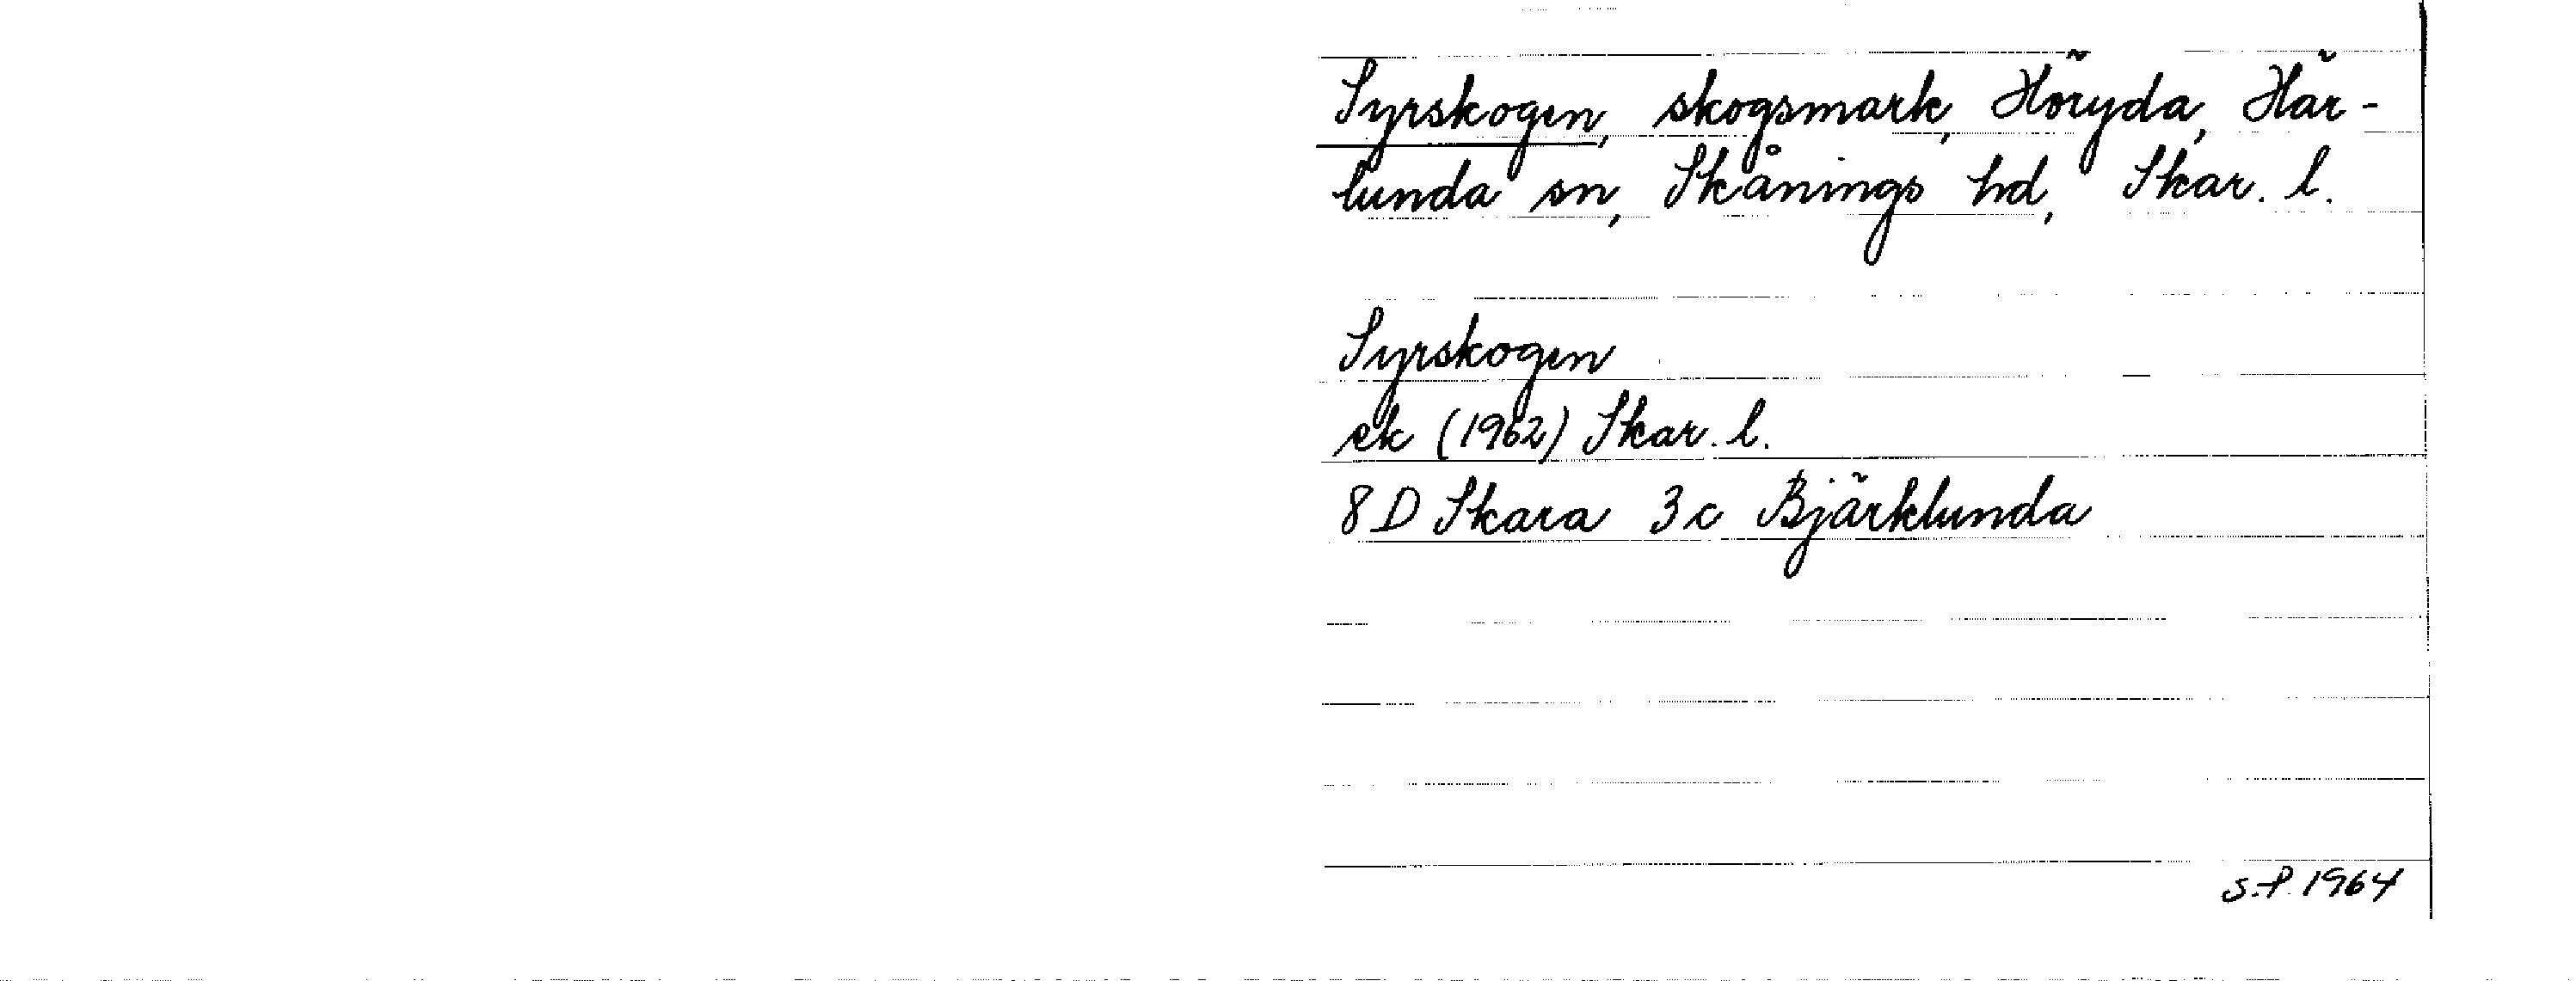 Syrskogen, skogsmark, Höryda, Här-
lunda sn, Skånings hd, Skar. l.
Syrskogen
ek (1962) Skar. l.
8 D Skara 3 c Bjärklunda
S.P. 1964